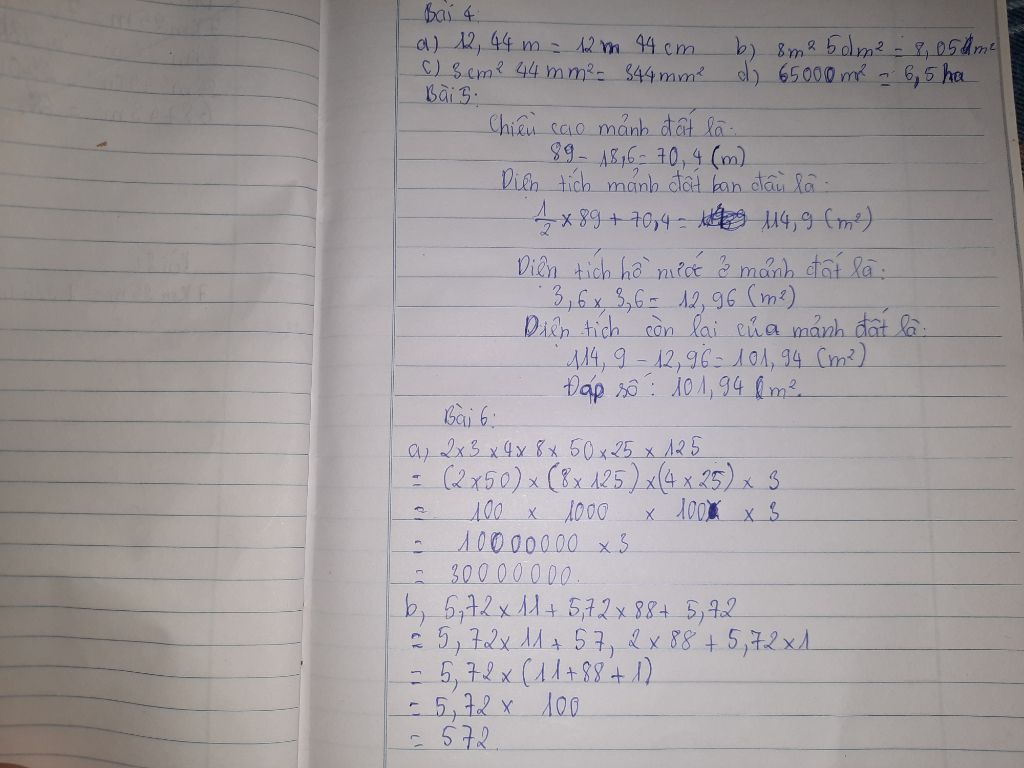 Bài 4:
a) 12,44 m = 12m 44 cm b) 8m² 5dm² = 8,05 m²
c) 3cm² 44 mm² = 344mm² d) 65000m² = 6,5 ha
Bài 5:
Chiều cao mảnh đất là:
89 - 18,6 = 70,4 (m)
Diện tích mảnh đất ban đầu là:
1/2 x 89 + 70,4 = 114,9 (m²)
Diện tích hồ nước ở mảnh đất là:
3,6 x 3,6 = 12,96 (m²)
Diện tích còn lại của mảnh đất là:
114,9 - 12,96 = 101,94 (m²)
Đáp số: 101,94 m².
Bài 6:
a, 2x3 x4x 8x 50x25 x 125
= (2x50) x (8x125) x (4x25) x 3
= 100 x 1000 x 100 x 3
= 10000000 x 3
= 30000000.
b, 5,72x11 + 5,72 x 88 + 5,72
= 5,72x11 + 57,2 x 88 + 5,72x1
= 5,72x (11+88+1)
= 5,72 x 100
= 572.